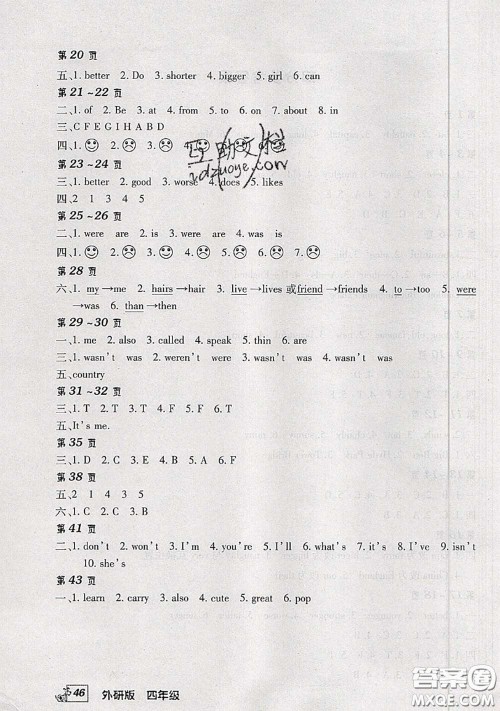 第20页
五、1. better 2. Do 3. shorter 4. bigger 5. girl 6. can
第21~22页
二、1. of 2. Be 3. at 4. from 5. to 6. in 7. about 8. in
三、C F E G I H A B D
四、1. 2. 3. 4.
第23~24页
三、1. better 2. good 3. worse 4. does 5. likes
四、2 1 3 4 5
第25~26页
二、1. were are 2. is was 3. are were 4. was is
四、1. 2. 3. 4. 5. 6. 7.
第28页
六、1. my→my 2. hairs→hair 3. live→lives 或friend→friends 4. to→too 5. were
→was 6. than→then
第29~30页
一、1. me 2. also 3. called 4. speak 5. thin 6. are
三、1. wasn't was 2. weren't were 3. wasn't was 4. wasn't was
五、country
第31~32页
三、1. T 2. T 3. F 4. T 5. F
五、It's me.
第35页
三、1. D 2. C 3. E 4. B 5. A
第38页
四、2 1 4 3 5
六、1. C 2. C 3. B 4. B 5. A
第41页
二、1. don't 2. won't 3. I'm 4. you're 5. I'll 6. what's 7. it's 8. I've 9. isn't
10. she's
第43页
一、1. learn 2. carry 3. also 4. cute 5. great 6. pop
46 外研版 四年级
互助文档
zdzuoye.com
答案圈
MXQE.COM